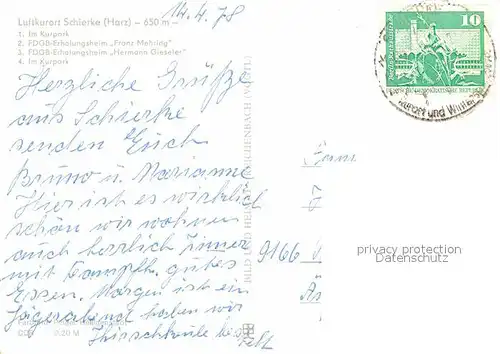 14.4.78
Luftkurort Schierke (Harz) – 650 m –
1. Im Kurpark
2. FDGB-Erholungsheim „Franz Mehring"
3. FDGB-Erholungsheim „Hermann Gieseler"
4. Im Kurpark
Herzliche Grüße
aus Schierke
senden Euch
Bruno u. Marianne
Hier ist es wirklich
schön wir wohnen
auch herrlich Zimmer
mit Komplt. gutes
Essen. Morgen ist ein
Jägerabend haben wir
Hirschkeule be
BILD UND HEIMAT REICHENBACH
10
Kurort und Winter
Fam
9166
privacy protection
AnsichtskartenCenter